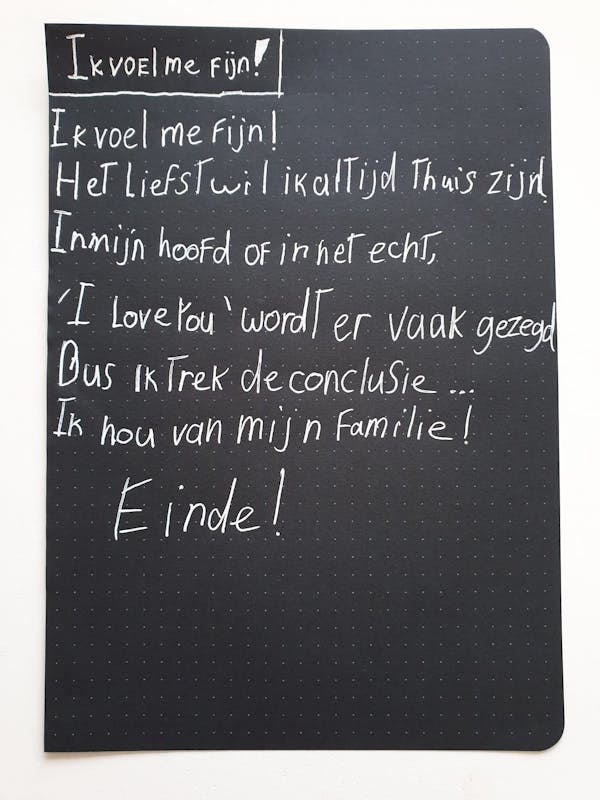 Ik voel me fijn!
Ik voel me fijn!
Het liefst wil ik altijd thuis zijn.
In mijn hoofd of in het echt,
'I Love You' wordt er vaak gezegd
Dus ik trek de conclusie...
Ik hou van mijn familie!
Einde!